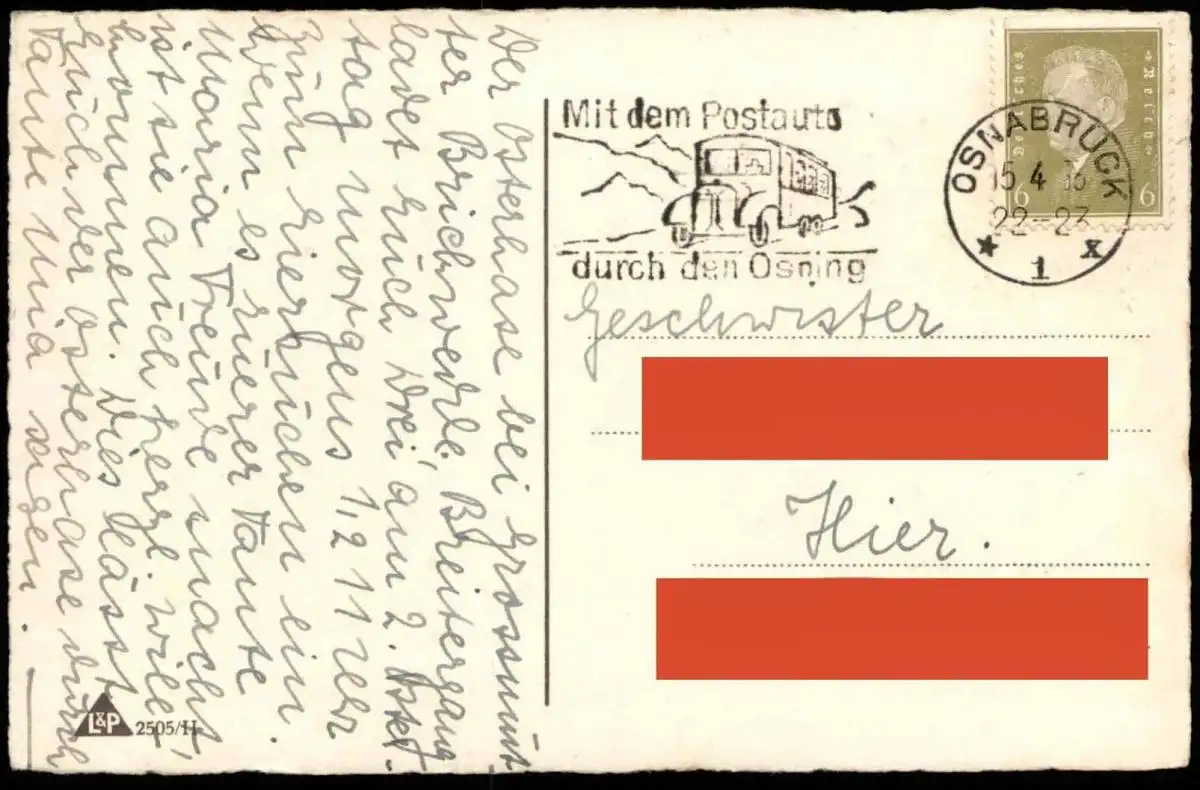 Der Osterhase bei Grossmut
ter Brickwedde, Breitergang
ladet Euch Drei am 2. Oster-
tag morgens 1/2 11 Uhr
zum Eiersuchen ein.
Wenn es Eurer Tante
Maria Freude macht,
ist sie auch herzl. will-
kommen. Dies lässt
Euch der Osterhase durch
Tante Mia sagen.
L&P 2505/H
Mit dem Postauto
durch den Osning
Deutsches Reich
6 6
OSNABRÜCK
15 4
22-23
* 1 x
Geschwister
Hier.